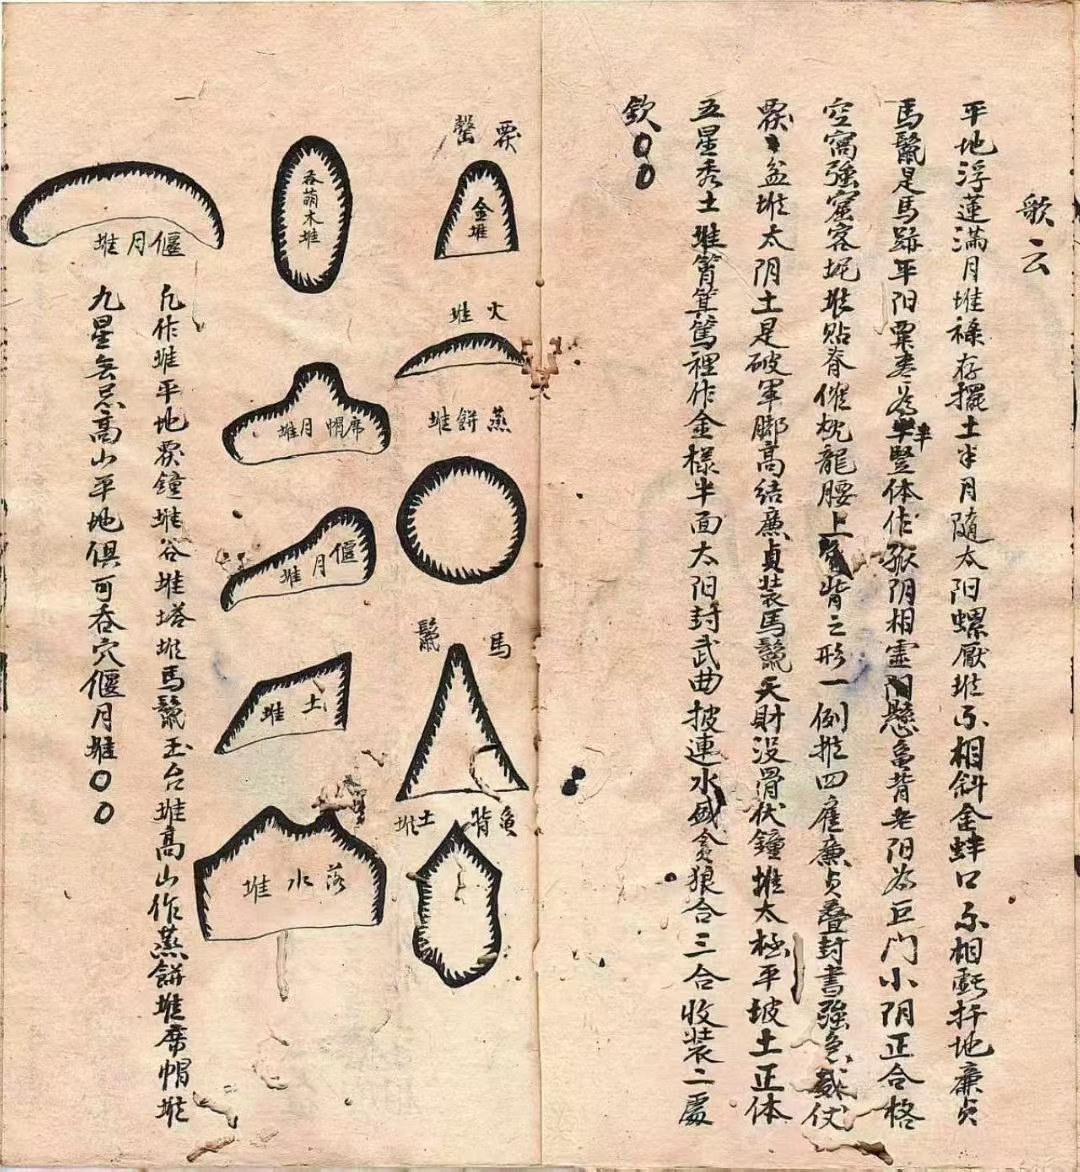 歌云
平地浮蓮滿月堆祿存擺土半月隨太阳螺厭堆不相斜金蚌口不相虧扦地廉貞
馬鬣是馬跡平阳粟枣為牟竪体作弥阴相靈閂懸龜背老阳為巨门小阴正合格
空窩強窟客坭堆貼脊倦枕龍腰上龜背之形一例推四准廉貞叠封書強急
覆盆堆太阴土是破軍脚高结廉貞装馬鬣天財没骨伏鐘堆太極平坡土正体
五星秀土堆箵箕篤裡作金樣半面太阳封武曲披連水盛貪狼合三合收装二處
欽
覆罄
金堆
火堆
蒸餅堆
馬鬣
龜背土堆
吞葫木堆
席帽月堆
偃月堆
土堆
落水堆
偃月堆
凢作堆平地覆鐘堆谷堆塔堆馬鬣玉台堆高山作蒸餅堆席帽堆
九星無忌高山平地俱可吞穴偃月堆